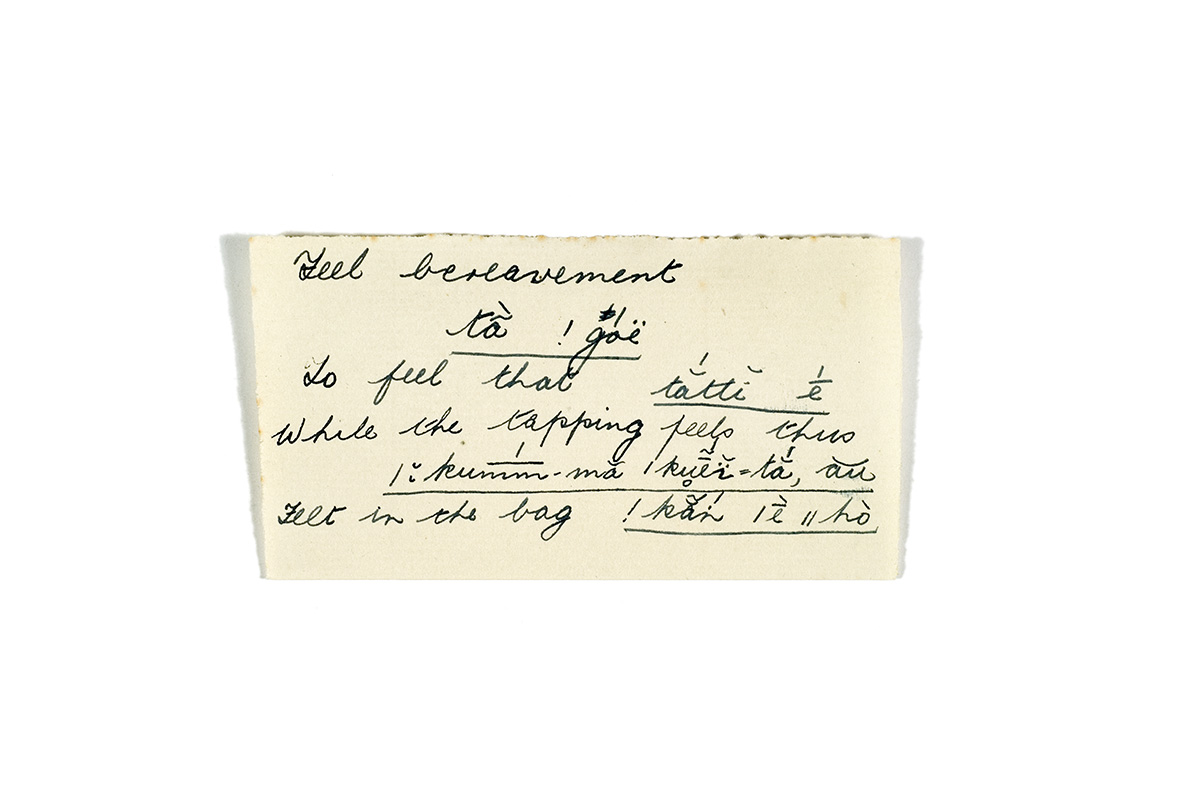 Feel bereavement
tà̃ ! góë
To feel that tắttĭ é̄
While the tapping feels thus
|ĭ kumm̄́-mă |kṷḗĭ=tắ, ău
Felt in the bag !kắṅ |ḕ ||hò